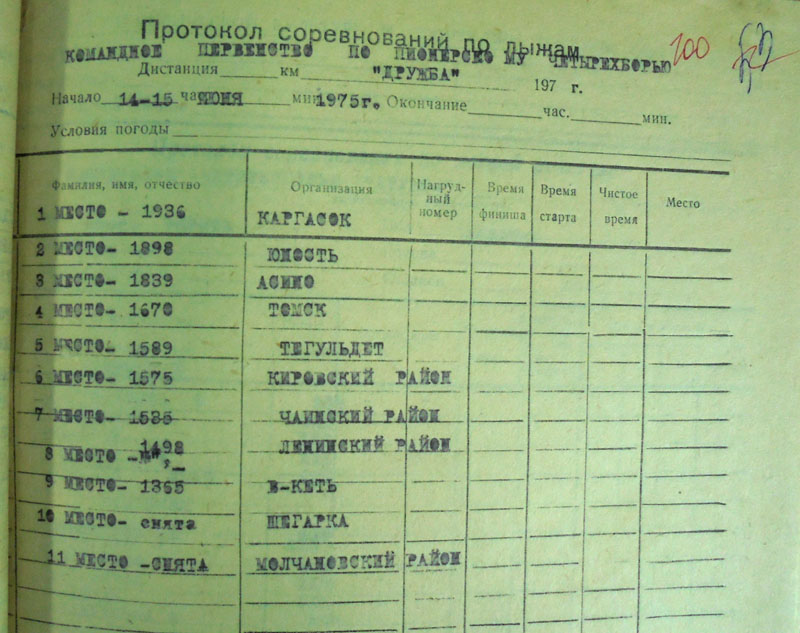 Протокол соревнований по лыжам
КОМАНДНОЕ ПЕРВЕНСТВО ПО ПИОНЕРСКОМУ ЧЕТЫРЕХБОРЬЮ 100
Дистанция км "ДРУЖБА" 197 г.
Начало 14-15 час ИЮНЯ мин 1975г. Окончание час. мин.
Условия погоды
Фамилия, имя, отчество Организация Нагрудный номер Время финиша Время старта Чистое время Место
1 МЕСТО - 1936 КАРГАСОК
2 МЕСТО- 1898 ЮНОСТЬ
3 МЕСТО- 1839 АСИНО
4 МЕСТО- 1670 ТОМСК
5 МЕСТО- 1589 ТЕГУЛЬДЕТ
6 МЕСТО- 1575 КИРОВСКИЙ РАЙОН
7 МЕСТО- 1535 ЧАИНСКИЙ РАЙОН
8 МЕСТО - 1498 ЛЕНИНСКИЙ РАЙОН
9 МЕСТО- 1365 В-КЕТЬ
10 МЕСТО- снята ШЕГАРКА
11 МЕСТО -СНЯТА МОЛЧАНОВСКИЙ РАЙОН